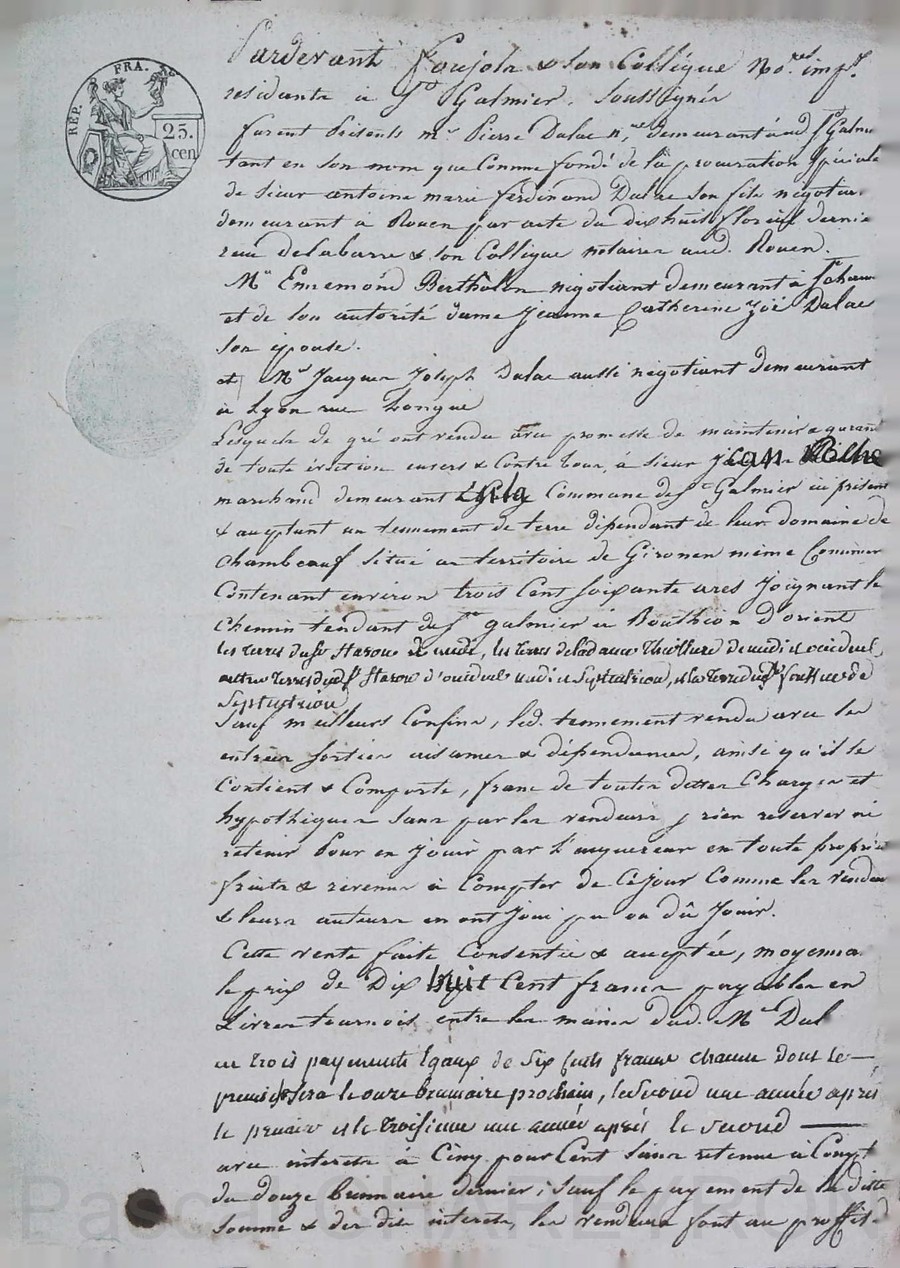 Pardevant Poujols & son Collègue No.res imp.x
residents à St Galmier, Soussignés
furent Présents mr Pierre Dulac n.re demeurant aud. St Galm
tant en son nom que Comme fondé de la procuration spéciale
de Sieur antoine marie ferdinand Dulac son fils négotiant
demeurant à Rouen par acte du dix huit floréal dernier
reçu delabarre & son Collègue notaires aud. Rouen.
Mr Ennemond Berthollon négotiant demeurant à St chamo
et de son autorité dame jeanne Catherine Zoé Dulac
son épouse.
et Mr Jacques Joseph Dulac aussi négotiant demeurant
à Lyon rue Longue
Lesquels de gré ont vendu avec promesse de maintenir & garan
de toute éviction envers & Contre tous, à Sieur jean
marchand demeurant Commune de St Galmier ici présent
& acceptant un tennement de terre dépendant de leur domaine de
chambeauf situé au territoire de Gironen même Commune
Contenant environ trois Cent soixante ares Joignant le
Chemin tendant de St galmier à Bouthéon d'orient
les terres du Sr de midi, les terres de la dame de midi et occident,
autre terres dud. Sr d'occident midi et Septentrion, et la terre du Sr de
Septentrion
Sauf meilleurs Confins, led. tennement vendu avec les
entrées sorties aisances & dépendances, ainsi qu'il se
Contient & Comporte, franc de toutes dettes Charges et
hypothèques sans par les vendeurs y rien reserver ni
retenir Pour en Jouir par l'acquereur en toute propriét
fruits & revenus à Compter de Cejour Comme les vendeu
& leurs auteurs en ont Joui pu ou dû Jouir.
Cette vente faite Consentie & acceptée, moyenna
le prix de Dix huit Cent francs payables en
Livres tournois entre les mains dud. Mr Dul
en trois payements Egaux de Six Cents francs chacun dont le —
premier sera le onze brumaire prochain, le Second une année après
le premier et le troisieme une année après le second —
avec interets à Cinq pour Cent sans retenue à Compt
du douze brumaire dernier; Sauf le payement de la ditte
Somme & des dits interets, les vendeurs font au proffit
REP. FRA.
25.
cen
Pascal CHARETRON